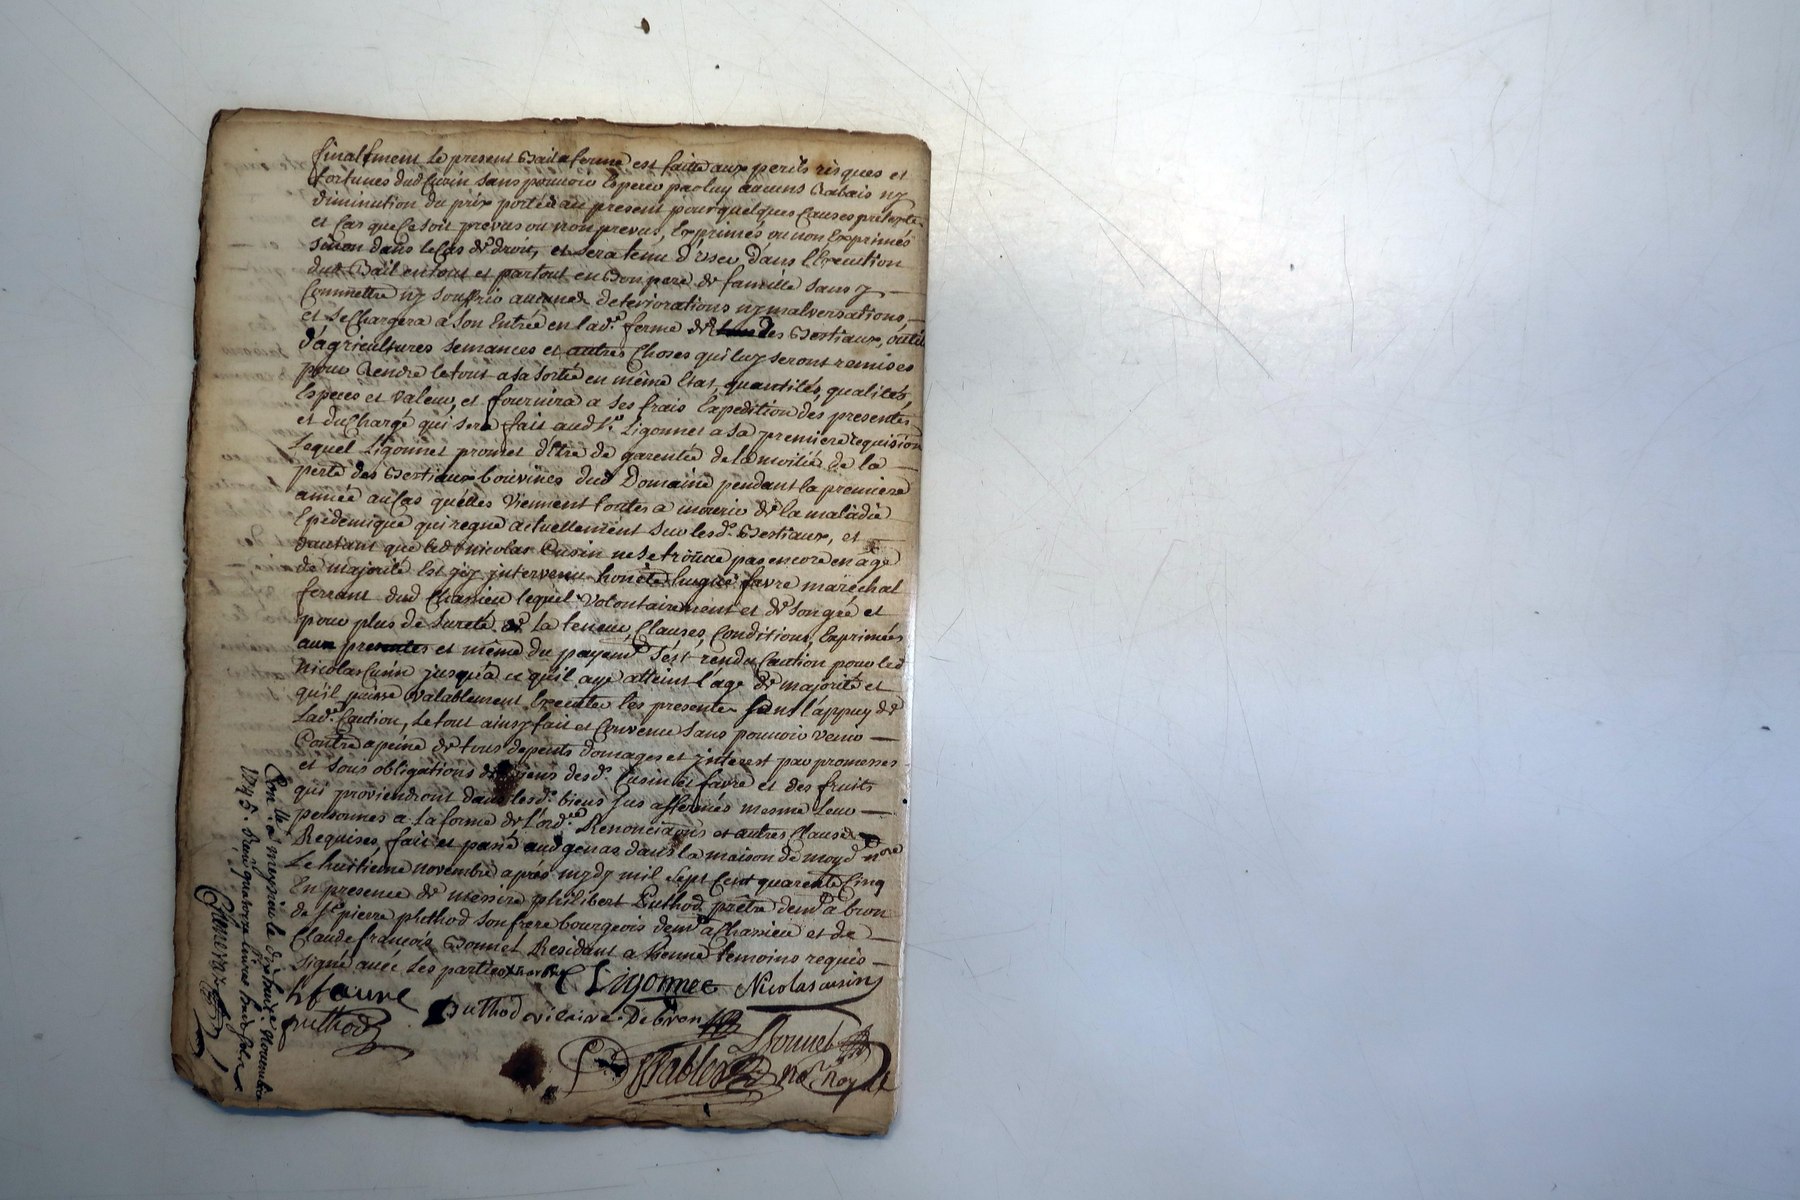 finallement le present Bail a ferme est faitte aux perils risques et
fortunes dud Cusin sans pouvoir Esperer par luy aucuns Rabais ny
diminution du prix porté au present pour quelques Causes pretexte
et Cas que Ce soit prevus ou non prevus, Exprimés ou non Exprimés
sinon dans le Cas de droit, et sera tenu d'user dans l'Execution
dud Bail en tout et partout en Bon pere de famille sans y
Commettre ny souffrir aucunes deteriorations ny malversations,
et se Chargera a son Entrée en lad.e ferme des Bestiaux, outils
d'agricultures semances et autres Choses qui luy seront remises
pour Rendre le tout a sa sortie en même Etat, quantités, qualités,
Especes et valeur, et fournira a ses frais Expedition des presentes
et du Chargé qui sera fait aud Sr. Ligonnet a sa premiere requisition
Lequel Ligonnet promet d'Etre de garentie de la moitié de la
perte des Bestiaux bouvines dud Domaine pendant la premiere
année au Cas qu'elles viennent toutes a mourir de la maladie
Epidemique qui regne actuellement sur lesd. Bestiaux, et
dautant que led nicolas Cusin ne se trouve pas encore en age
de majorité Est icy intervenu honête hugue favre maréchal
ferrant dud Chassieu lequel volontairement et de son gré et
pour plus de sureté de la teneur, Clauses, Conditions, Exprimées
aux presentes et même du payem.t s'est rendu Caution pour led
Nicolas Cusin jusqu'a ce qu'il aye atteint l'age de majorité et
qu'il puisse valablement Executer les presentes sans l'appuy de
lad.e Caution, Le tout ainsy fait et Convenu sans pouvoir venir
Contre a peine de tous depents domages et interest par promesses
et sous obligations des biens desd. Cusin et favre et des fruits
qui proviendront dans lesd. biens sus affermés mesme leur
personnes a la forme de l'ord.ce Renonciaons et autres Clauses
Requises, fait et passé aud genas dans la maison de moyd nore
Le huitieme novembre après mydy mil sept Cent quarente Cinq
En presence de messire philibert Puthod prêtre dem.t a bron
de Sr. pierre phthod son frere bourgeois dem.t a Chassieu et de
Claude françois Bonnet Residant a Vienne temoins requis
signé avec les parties
Ligonnet Nicolas cusin
h favre
Puthod vicaire De bron
puthod
Bonnet
Estables No.re Royal
Con.llé a meyzieu le dixhuit. Novembre
1745. Reçu quatorze livres huit sols